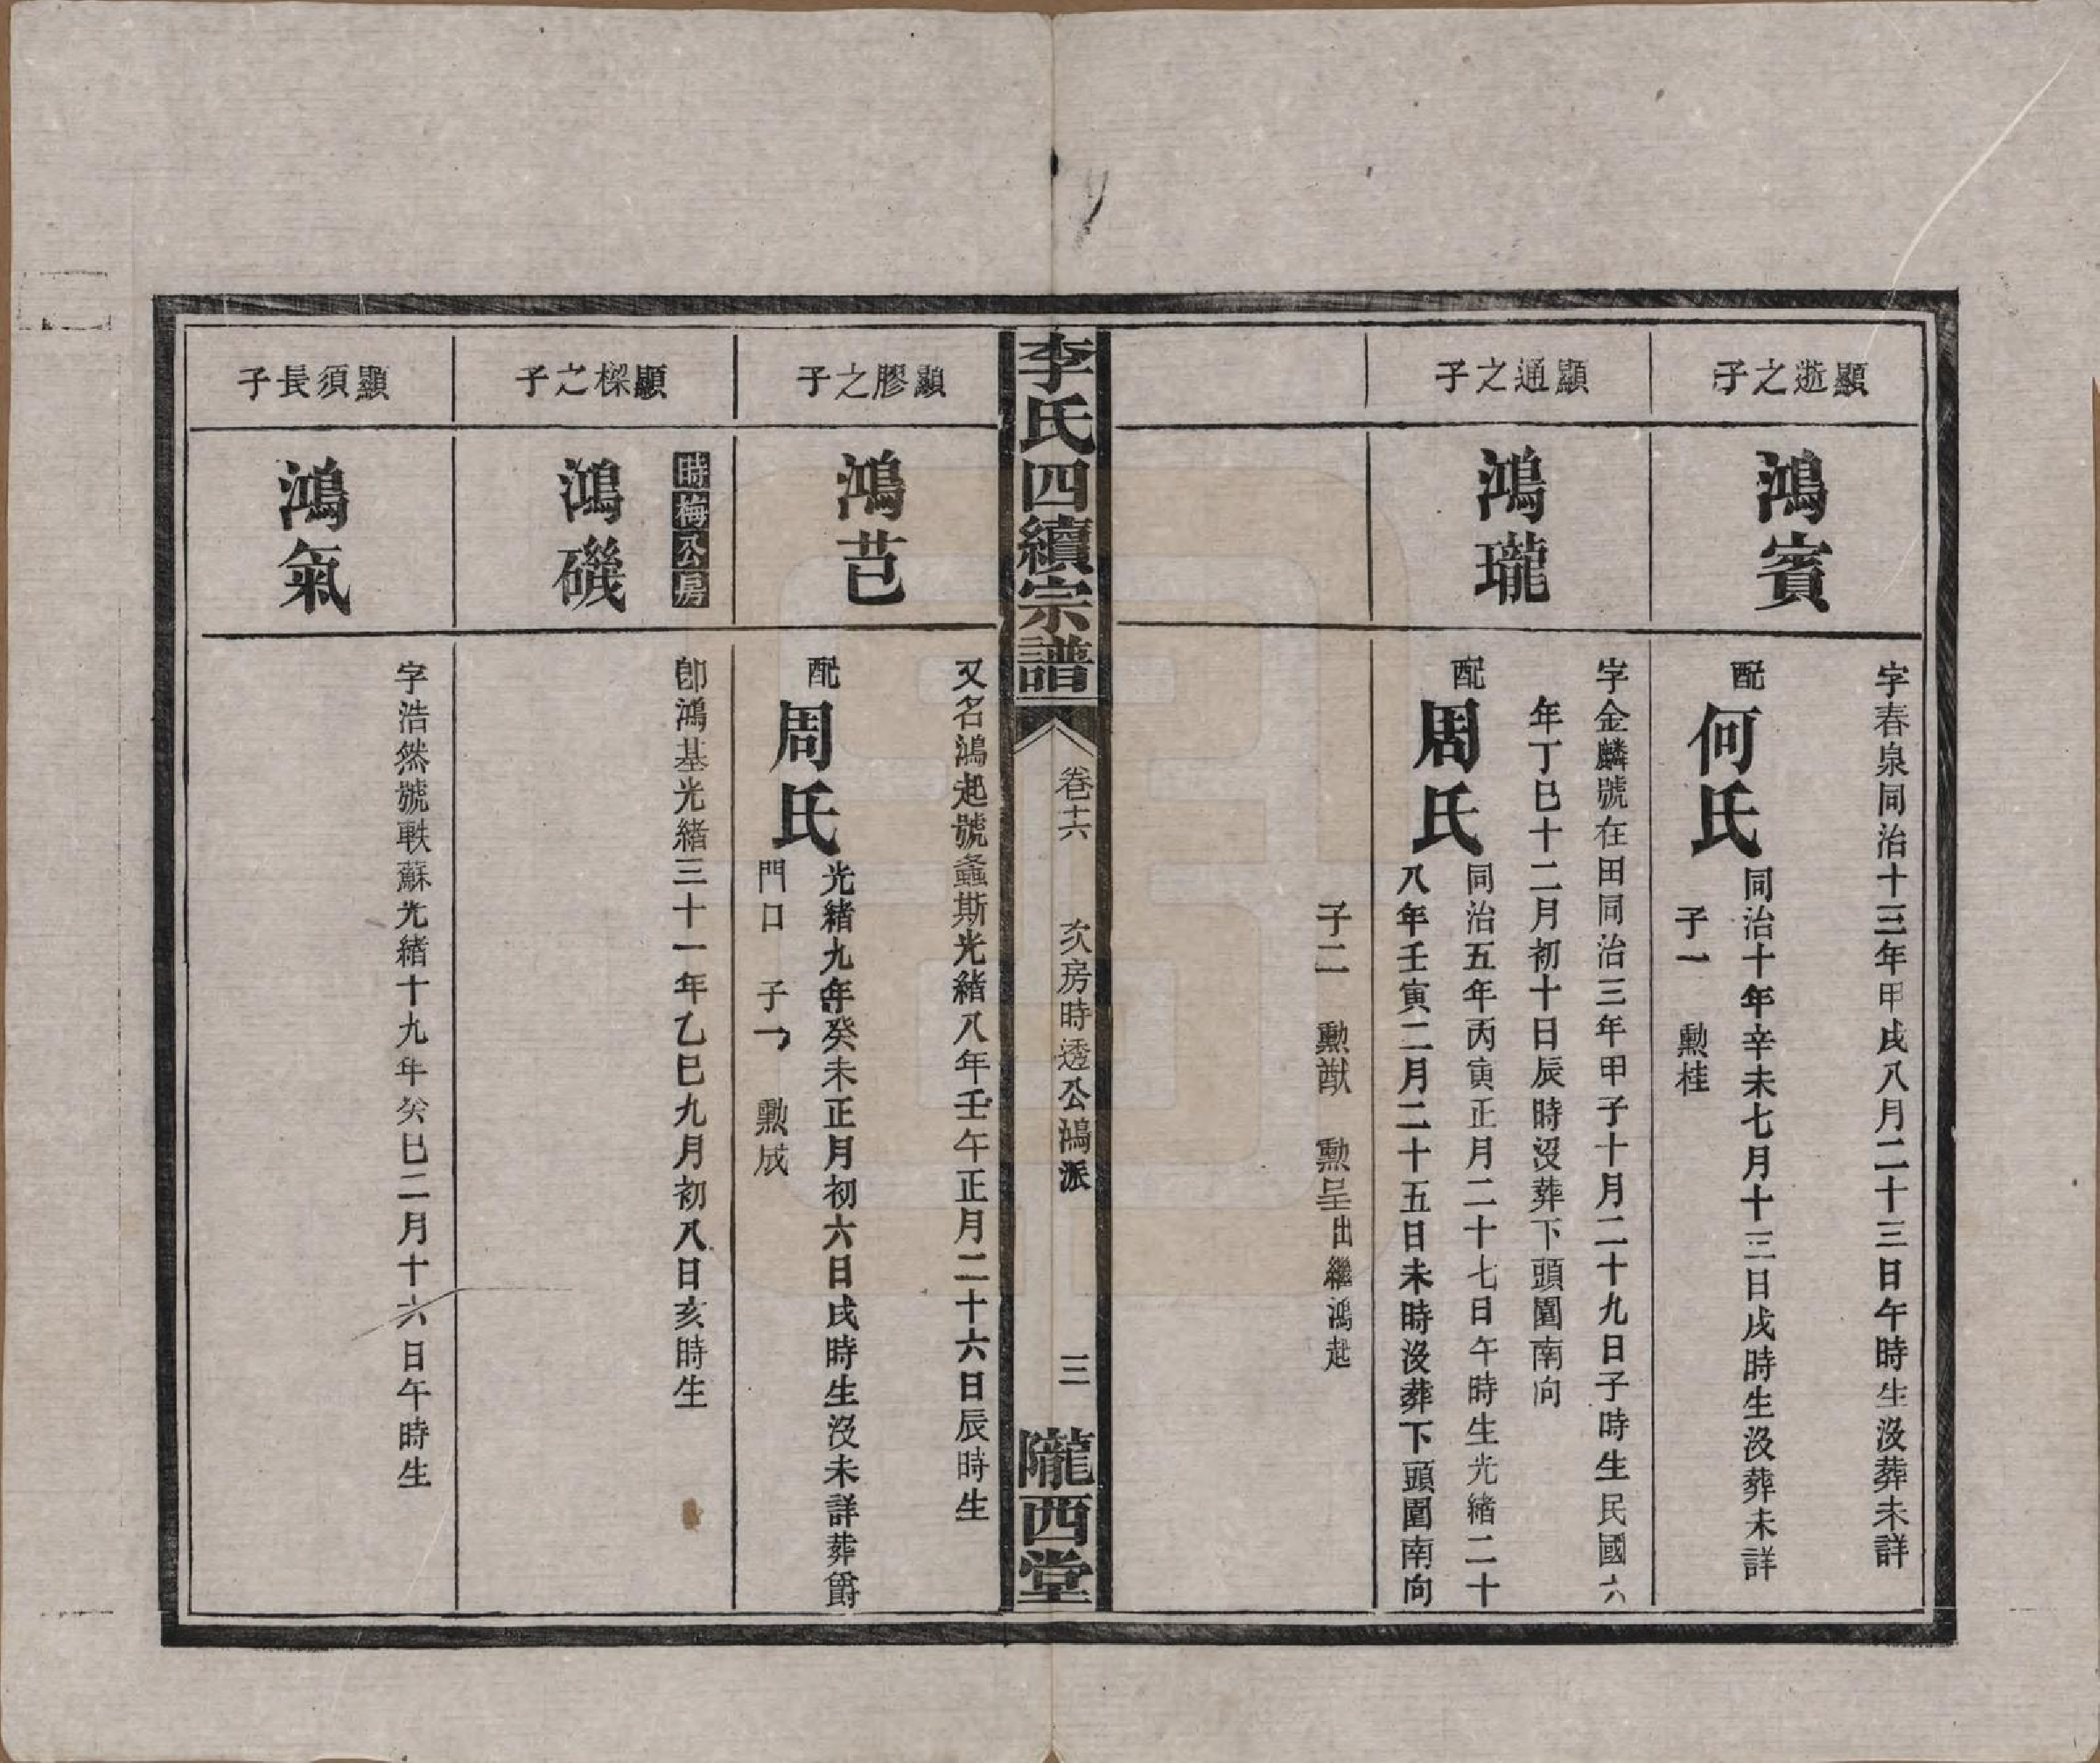 顯逝之子
鴻賓
字春泉同治十三年甲戌八月二十三日午時生沒葬未詳
配何氏同治十年辛未七月十三日戌時生沒葬未詳
子一 勲桂
顯通之子
鴻瓏
字金麟號在田同治三年甲子十月二十九日子時生民國六
年丁巳十二月初十日辰時沒葬下頭圍南向
配周氏同治五年丙寅正月二十七日午時生光緒二十
八年壬寅二月二十五日未時沒葬下頭圍南向
子二 勲猷 勲呈出繼鴻起
李氏四續宗譜
卷十六
次房時透公鴻派
三
隴西堂
顯膠之子
鴻芑
又名鴻起號螽斯光緒八年壬午正月二十六日辰時生
配周氏光緒九年癸未正月初六日戌時生沒未詳葬爵
門口 子一 勲成
時梅公房
顯樑之子
鴻磯
卽鴻基光緒三十一年乙巳九月初八日亥時生
顯須長子
鴻氣
字浩然號軼蘇光緒十九年癸巳二月十六日午時生